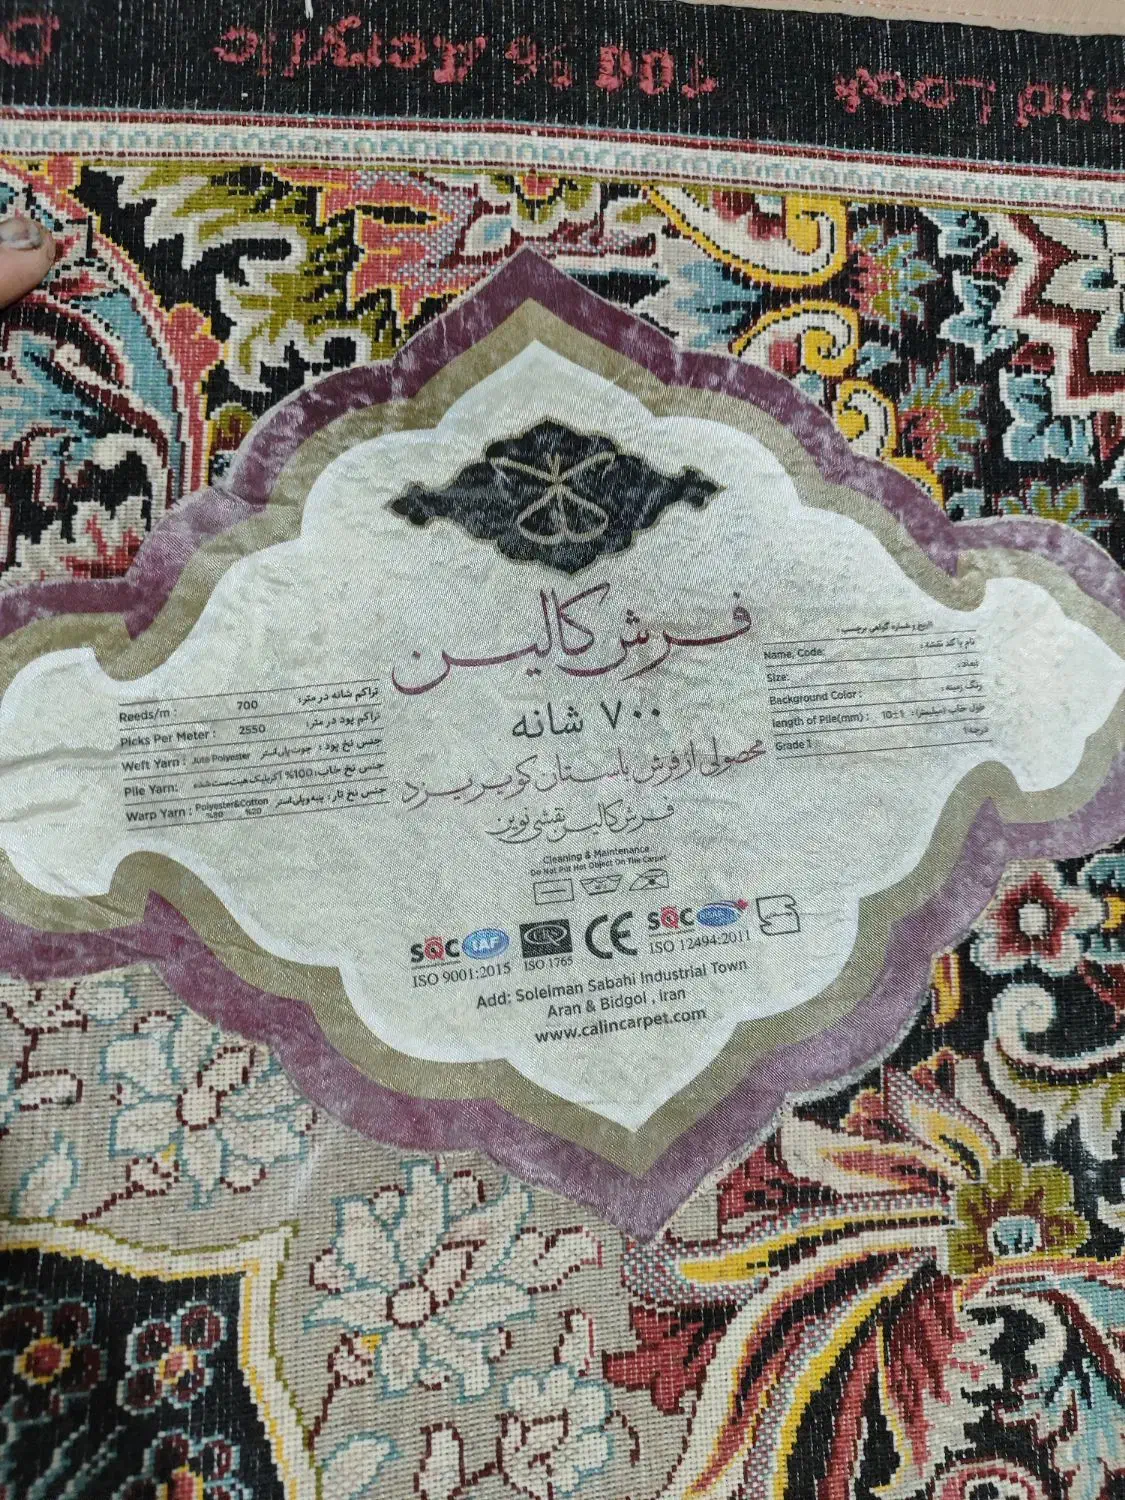 100 % Acrylic
فرش کالین
۷۰۰ شانه
محصولی از فرش باستان کویر یزد
فرش کالین نقشی نوین
Reeds/m : 700 تراکم شانه در متر:
Picks Per Meter : 2550 تراکم پود در متر:
Weft Yarn : Jute Polyester جنس نخ پود : جوت پلی استر
Pile Yarn: جنس نخ خاب: 100% آکریلیک هیت ست شده
Warp Yarn : Polyester&Cotton جنس نخ تار: پنبه و پلی استر
%80 %20
تاریخ و شماره گواهی برچسب :
Name, Code: نام یا کد نقشه :
Size: ابعاد :
Background Color : رنگ زمینه :
length of Pile(mm) : 10±1 طول خاب (میلیمتر):
Grade 1 درجه 1
Cleaning & Maintenance
Do Not Put Hot Object On The Carpet
SQC IAF
ISO 9001:2015
ISO 1765
CE
SQC
ISO 12494:2011
Add: Soleiman Sabahi Industrial Town
Aran & Bidgol , Iran
www.calincarpet.com